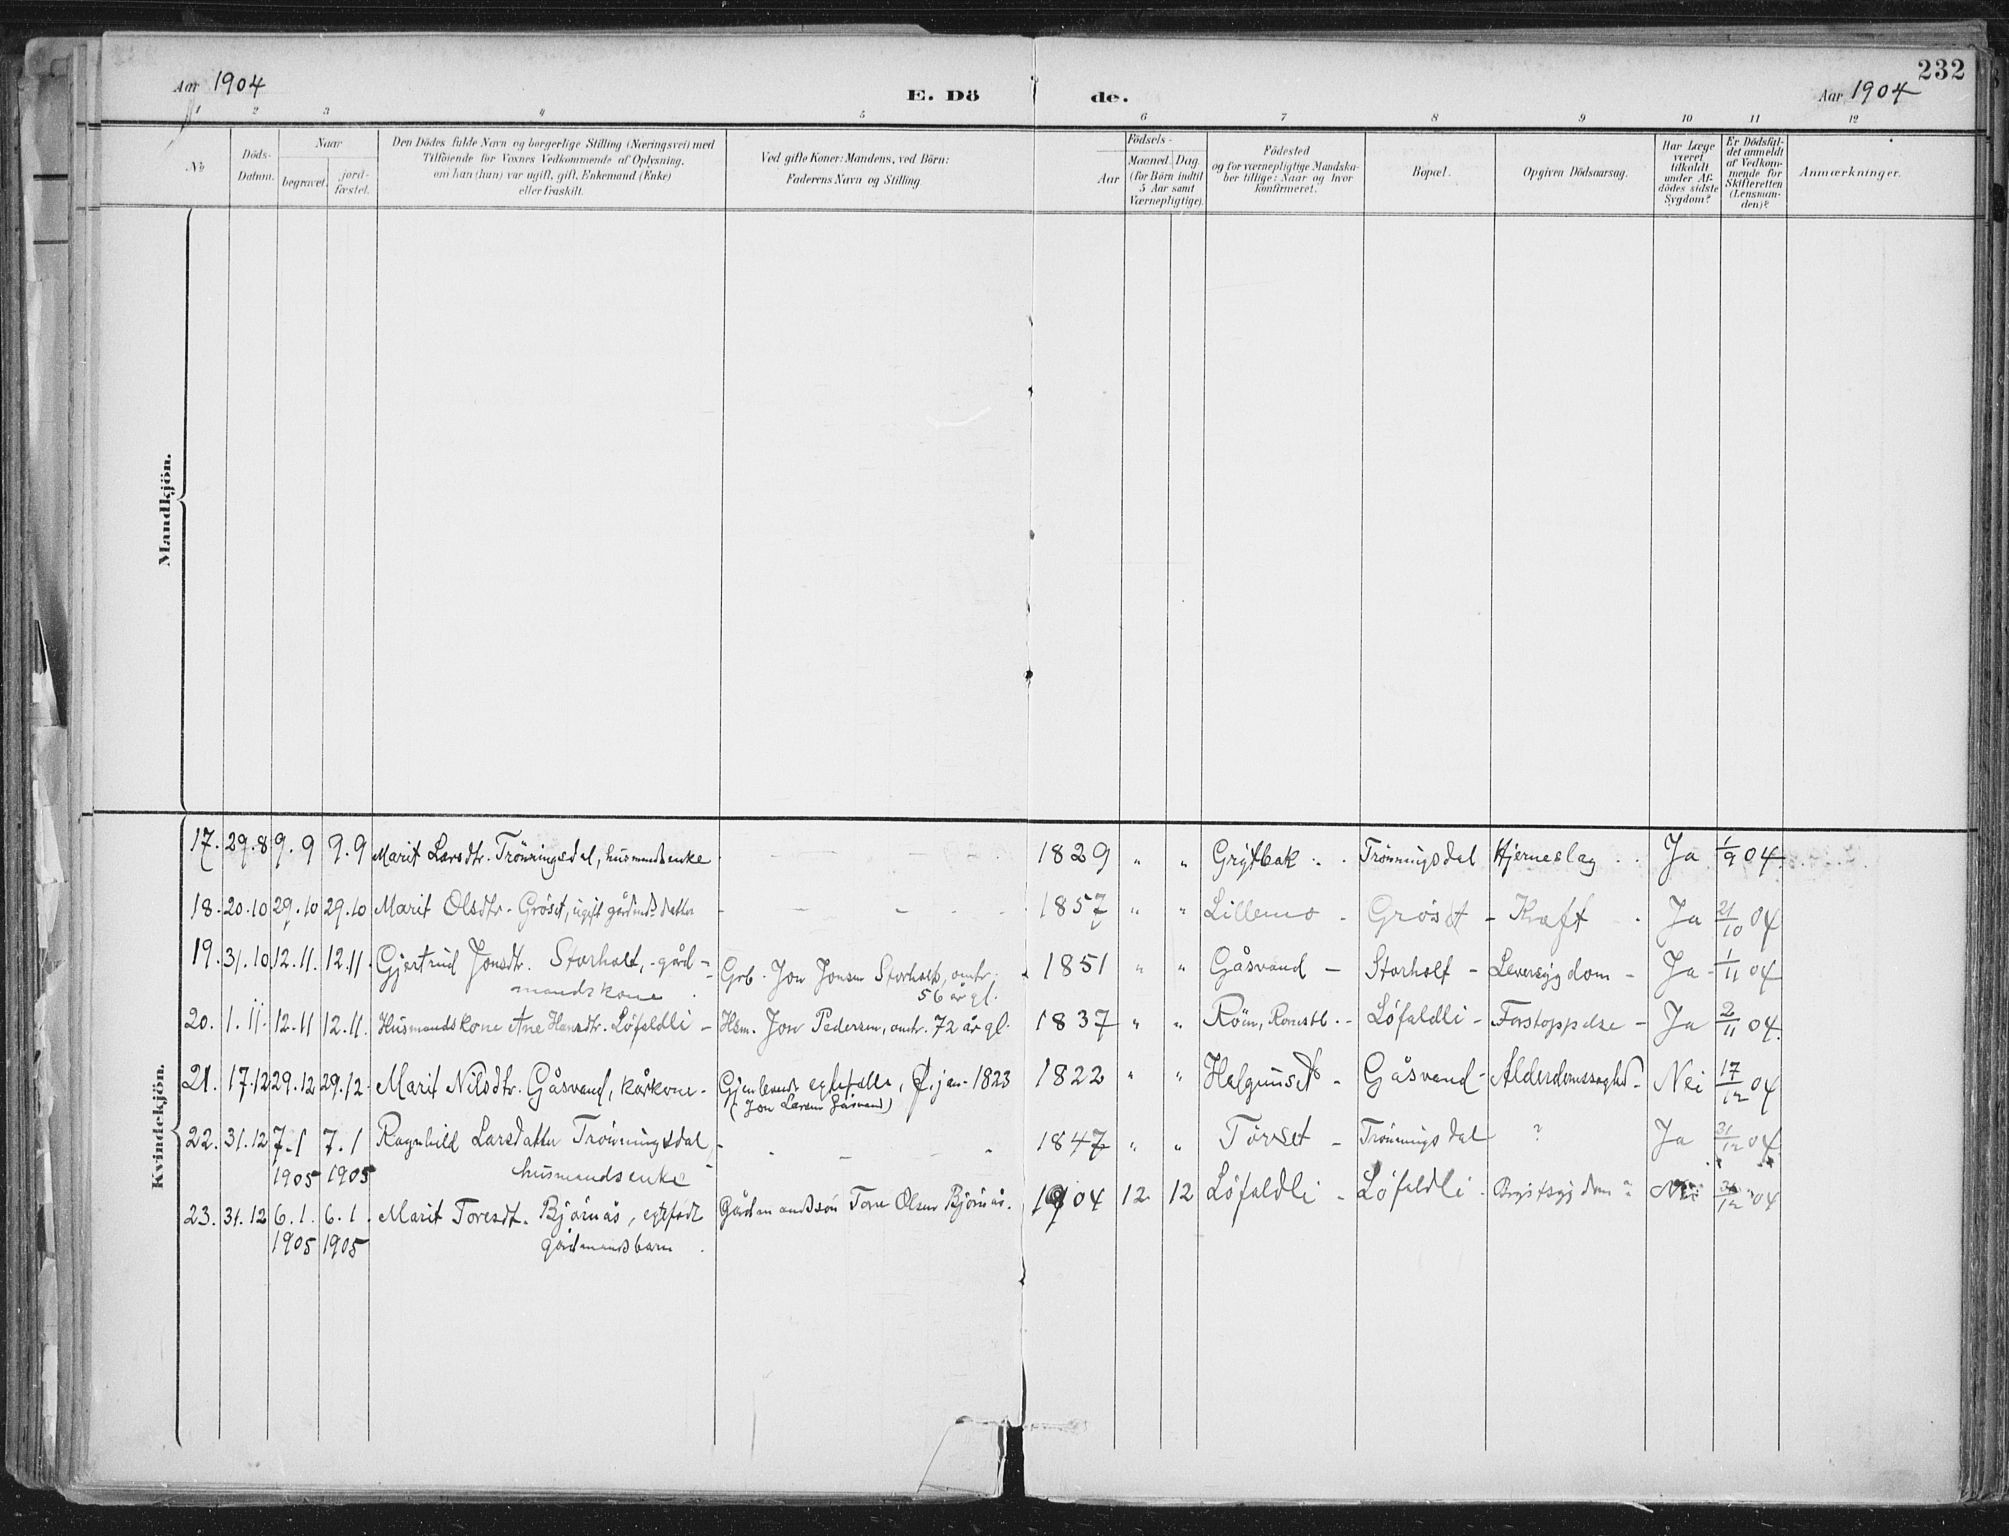 232
Aar 1904 E. Dö de. Aar 1904
1 2 3 4 5 6 7 8 9 10 11 12
No
Döds-Datum.
Naar
begravet.
jord-fæstet.
Den Dödes fulde Navn og borgerlige Stilling (Næringsvei) med
Tilföiende for Voxnes Vedkommende af Oplysning,
om han (hun) var ugift, gift, Enkemand (Enke)
eller fraskilt.
Ved gifte Koner: Mandens, ved Börn:
Faderens Navn og Stilling.
Födsels-
Aar
Maaned. Dag.
(for Börn indtil
5 Aar samt
Værnepligtige).
Födested
og for værnepligtige Mandska-
ber tillige: Naar og hvor
konfirmeret.
Bopæl.
Opgiven Dödsaarsag.
Har Læge
været
tilkaldt
under Af-
dödes sidste
Sygdom?
Er Dödsfal-
det anmeldt
af Vedkom-
mende for
Skifteretten
(Lensman-
den)?
Anmærkninger.
Mandkjön.
Kvindekjön.
17. 29.8 9.9 9.9 Marit Larsdtr. Trönningsdal, husmandsenke - - - 1829 " " Grytbak Trönningsdal Hjerneslag Ja 1/9 04
18. 20.10 29.10 29.10 Marit Olsdtr. Gröset, ugift gårdmds datter - - - 1857 " " Lillemo - Gröset - Kræft Ja 21/10 04
19. 31.10 12.11. 12.11. Gjertrud Jonsdtr. Storholt, gård- Grb. Jon Jonsen Storholt, omtr. 1851 " " Gåsvand - Storholt - Leversygdom - Ja - 1/11 04
mandskone 56 år gl.
20. 1.11. 12.11 12.11. Husmandskone Ane Hansdtr. Löfaldli - Hsm. Jon Pedersen, omtr. 72 år gl. 1837 " " Röm, Romsdl. - Löfaldli - Forstoppelse - Ja 2/11 04.
21. 17.12 29.12 29.12. Marit Nilsdtr. Gåsvand, kårkone - Gjenlevende egtefælle, f. jan. 1823 1822 " " Halgunset - Gåsvand - Alderdomssvaghed - Nei 17/12 04
(Jon Larsen Gåsvand)
22. 31.12 7.1 7.1 Ragnhild Larsdatter Trönningsdal - - - 1847 " " Törset - Trönningsdal ? Ja 31/12 04
1905 1905 husmandsenke
23. 31.12 6.1. 6.1. Marit Toresdt. Bjørnås, egtefødt Gårdmandssön Tore Olsen Bjørnås. 1904 12. 12 Löfaldli - Löfaldli. Brystsygdom? Nei 31/12 04
1905 1905 gårdmandsbarn